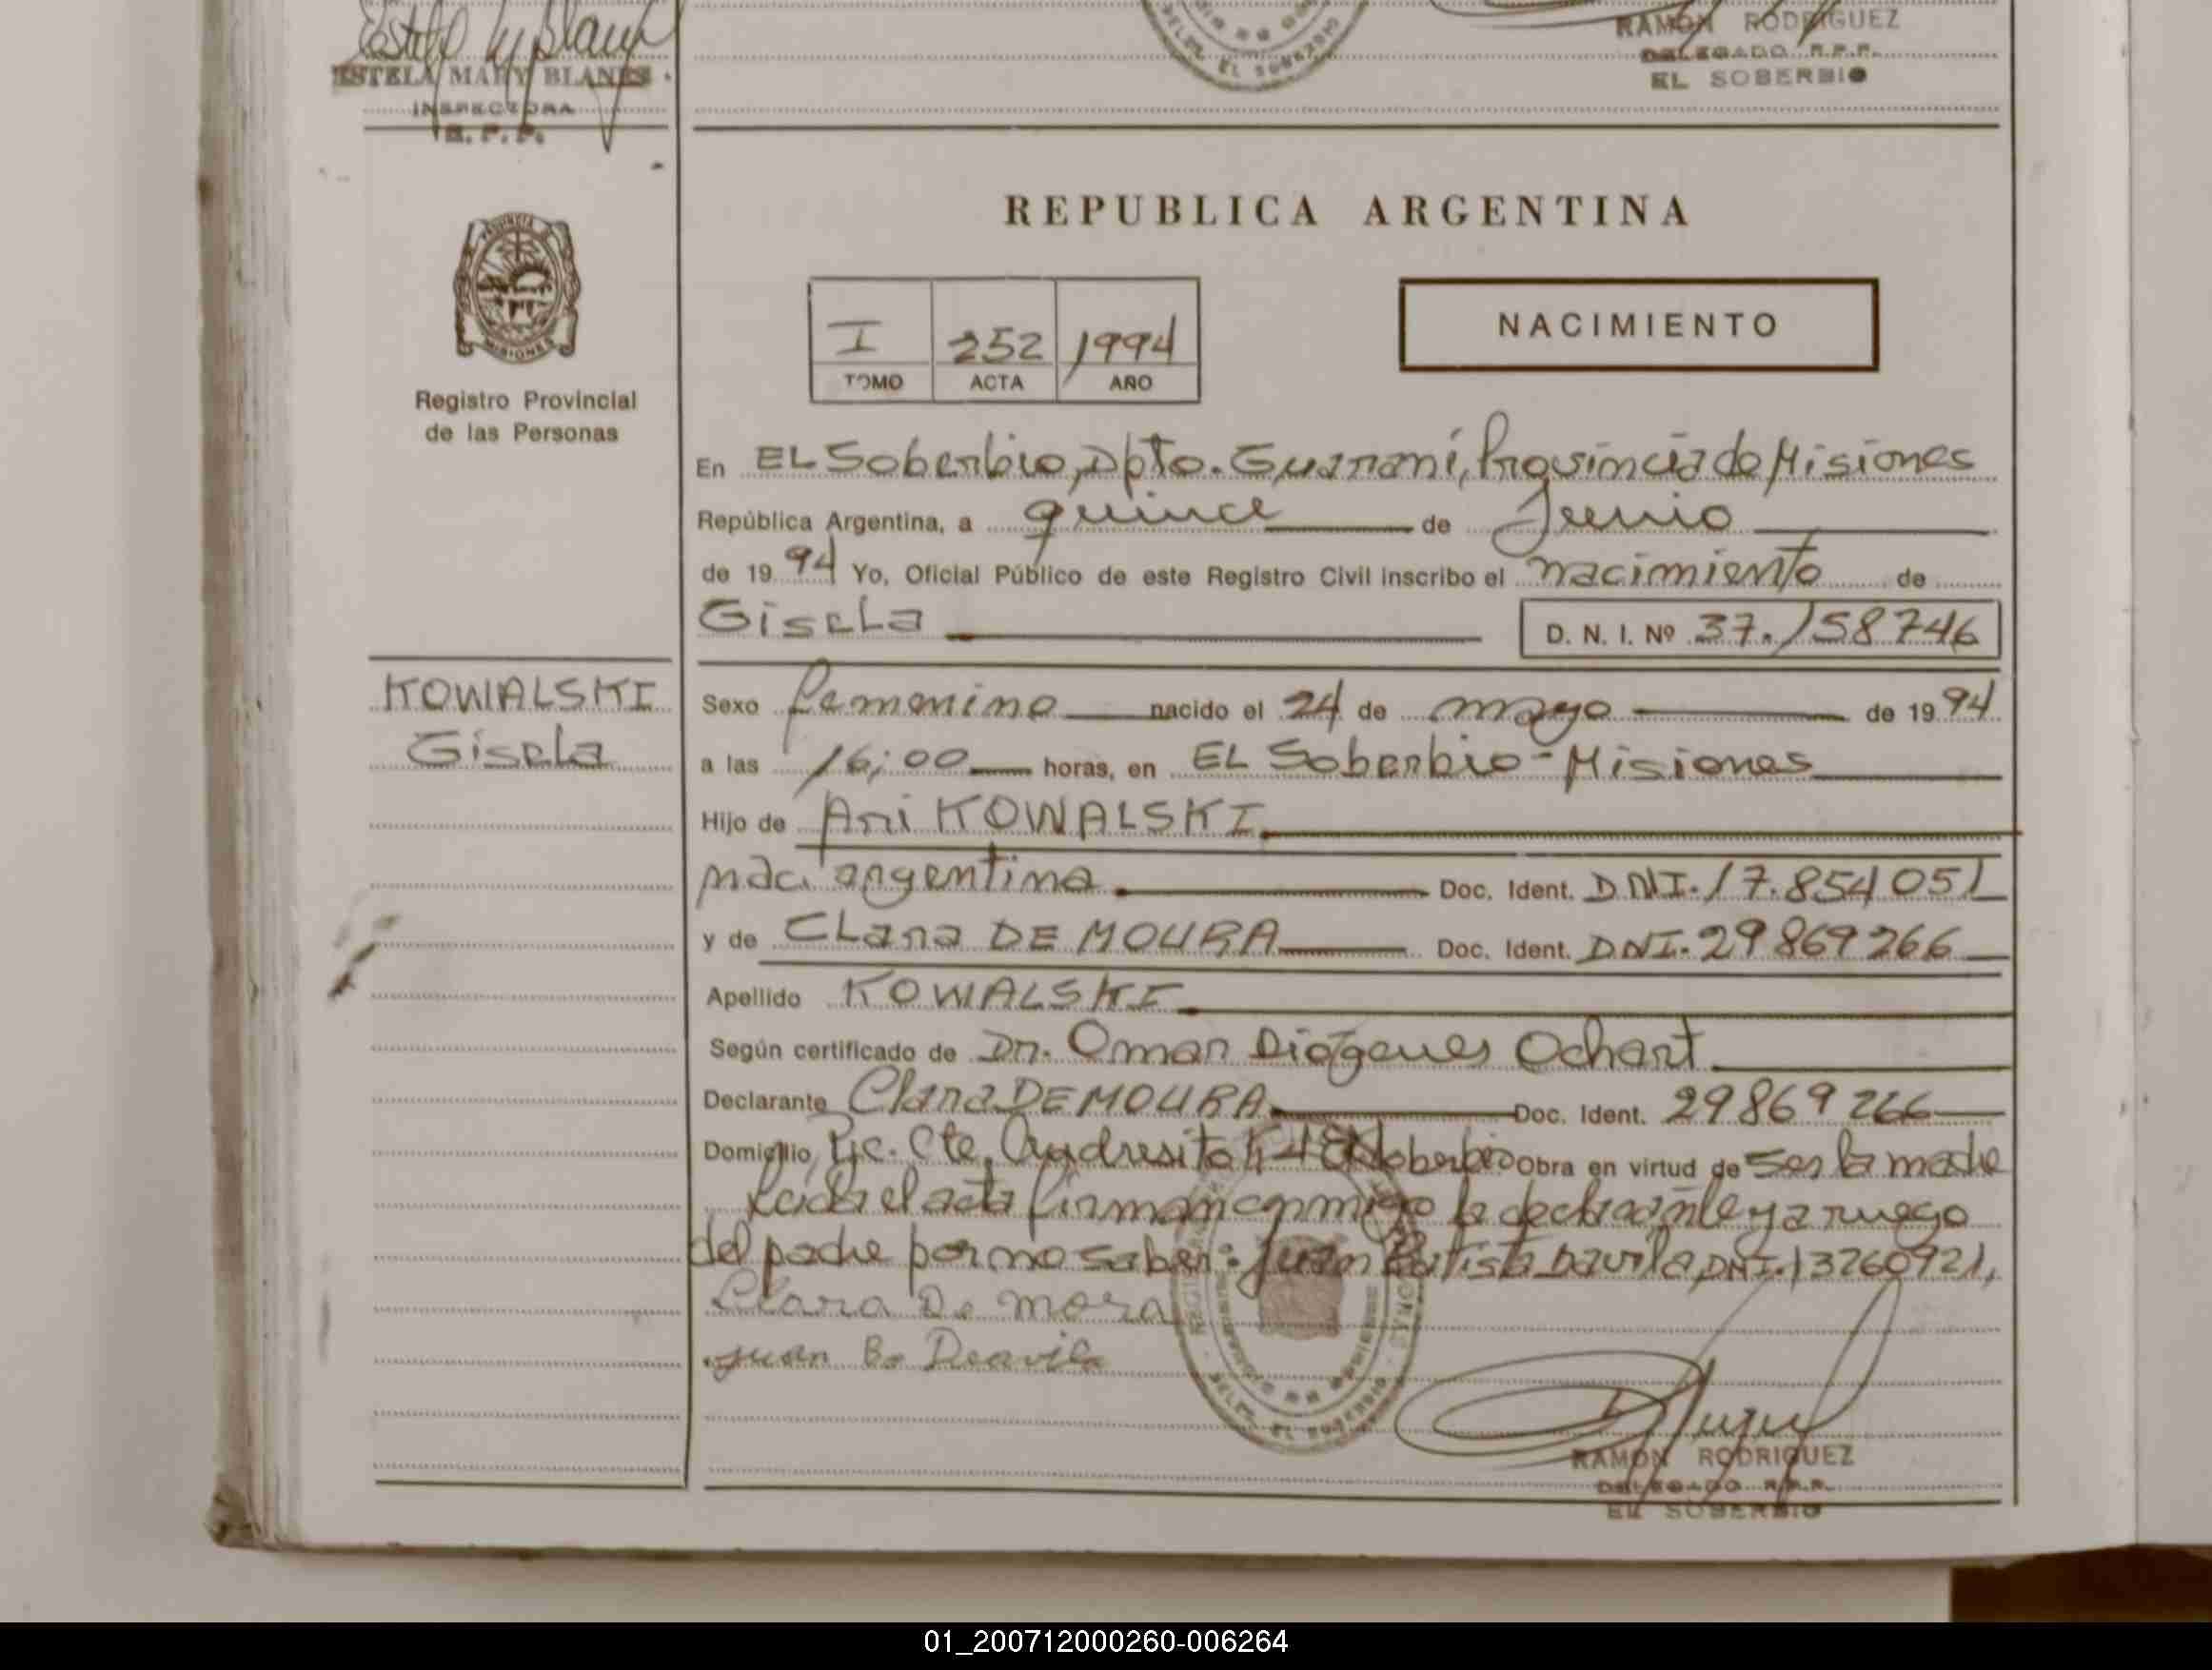 ESTELA MARY BLANES
INSPECTORA
R. P. P.
EL SOBERBIO
RAMON RODRIGUEZ
DELEGADO R.P.P.
EL SOBERBIO
PROVINCIA
MISIONES
Registro Provincial
de las Personas
REPUBLICA ARGENTINA
I 252 1994
TOMO ACTA AÑO
NACIMIENTO
En EL Soberbio, Dpto. Guaraní, Provincia de Misiones
República Argentina, a quince de Junio
de 1994 Yo, Oficial Público de este Registro Civil inscribo el nacimiento de
Gisela D. N. I. Nº 37.158746
KOWALSKI
Gisela
Sexo femenino nacido el 24 de mayo de 1994
a las 16;00 horas, en EL Soberbio - Misiones
Hijo de Ari KOWALSKI
nac. argentina Doc. Ident. DNI. 17.854051
y de CLara DE MOURA Doc. Ident. DNI. 29869266
Apellido KOWALSKI
Según certificado de Dr. Omar Diógenes Ochart
Declarante Clara DE MOURA Doc. Ident. 29869266
Domicilio Pje. Cte. Andresito El Soberbio Obra en virtud de Ser la madre
Leida el acta firman conmigo la declarante y a ruego
del padre por no saber: Juan Batista Davila, DNI. 13260921,
Clara De mora
Juan B. Deavila
EL SOBERBIO
RAMON RODRIGUEZ
DELEGADO R.P.P.
EL SOBERBIO
01_200712000260-006264